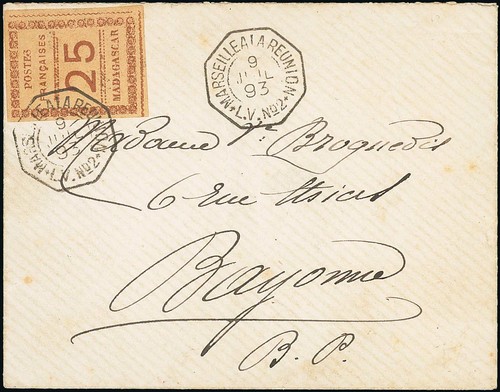 POSTES
FRANÇAISES
25
MADAGASCAR
MARSEILLE A LA REUNION
9
JUIL
93
L.V. No2
MARS LA REUN
9
93
L.V. No2
Madame Vve Broquedis
6 rue
Bayonne
B. P.